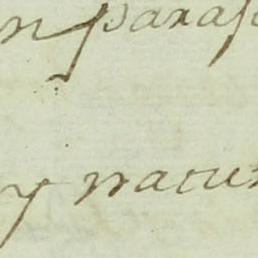 n paras
y natur